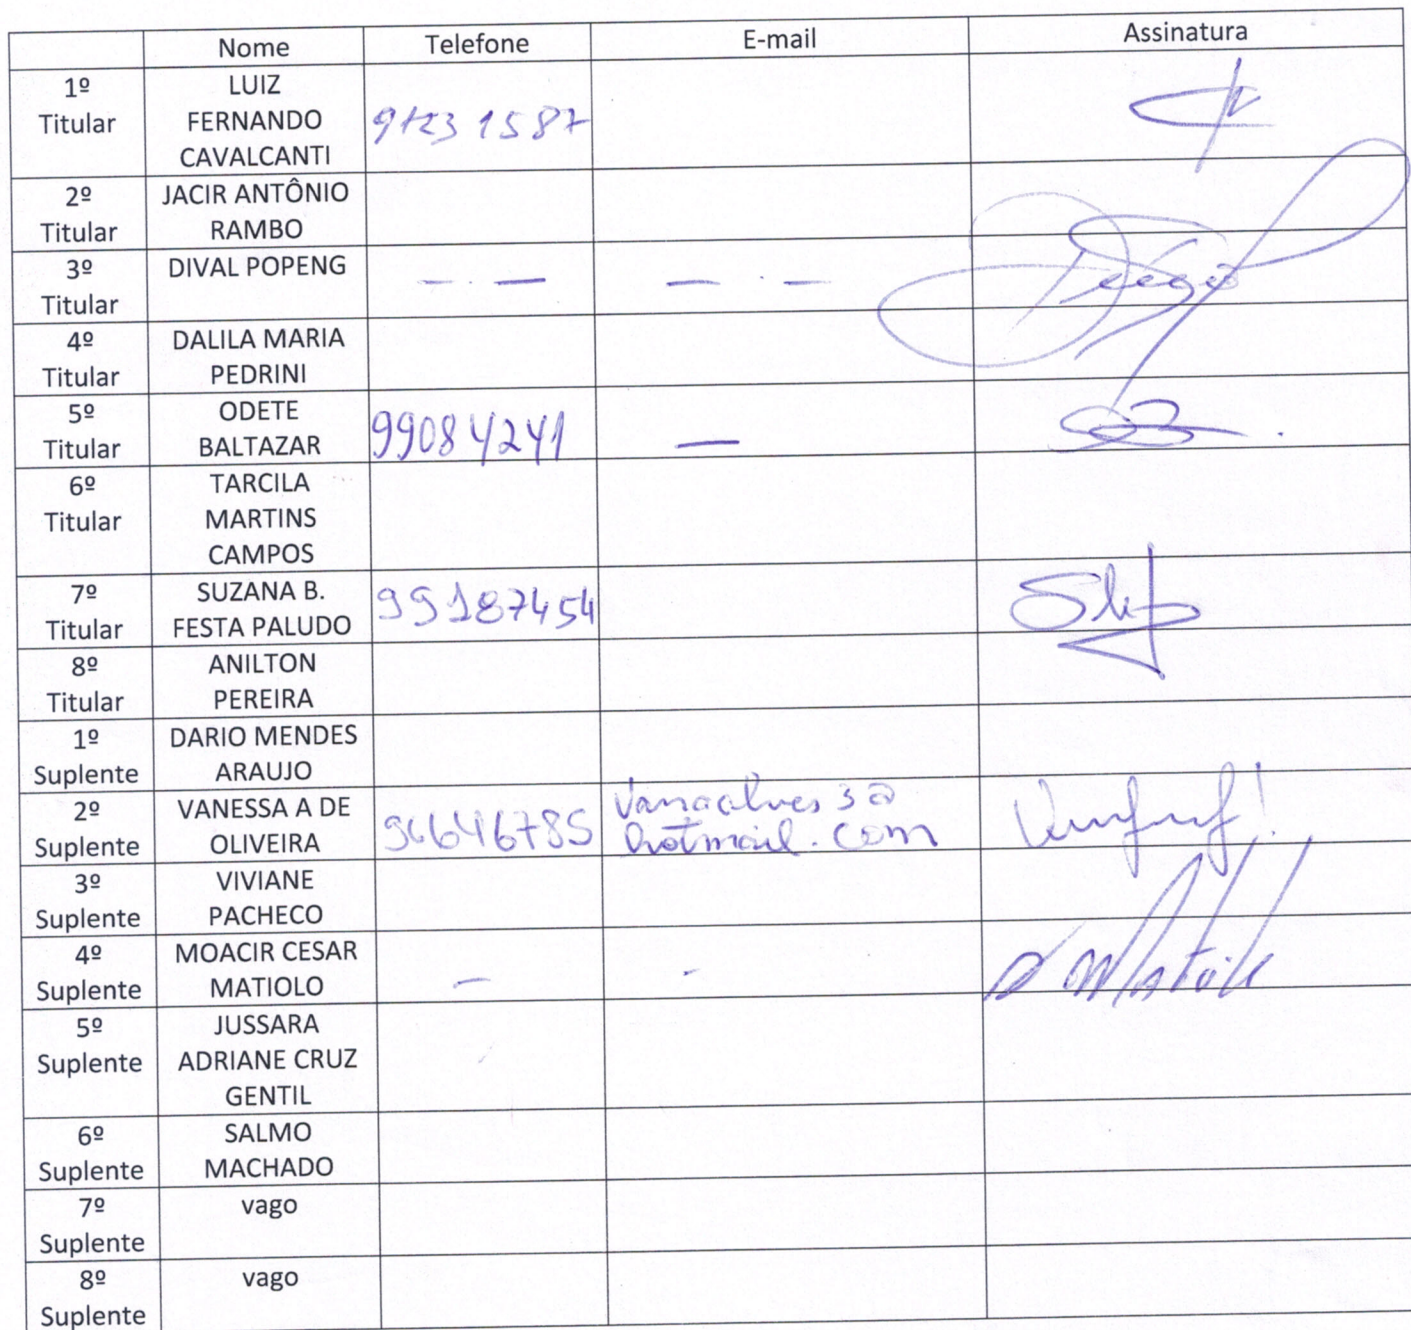 Nome Telefone E-mail Assinatura
1º
Titular
LUIZ
FERNANDO
CAVALCANTI
9123 1587
2º
Titular
JACIR ANTÔNIO
RAMBO
3º
Titular
DIVAL POPENG
— — — —
4º
Titular
DALILA MARIA
PEDRINI
5º
Titular
ODETE
BALTAZAR
99084241
—
6º
Titular
TARCILA
MARTINS
CAMPOS
7º
Titular
SUZANA B.
FESTA PALUDO
99187454
8º
Titular
ANILTON
PEREIRA
1º
Suplente
DARIO MENDES
ARAUJO
2º
Suplente
VANESSA A DE
OLIVEIRA
96646785
vanaalves3@
hotmail.com
3º
Suplente
VIVIANE
PACHECO
4º
Suplente
MOACIR CESAR
MATIOLO
– -
5º
Suplente
JUSSARA
ADRIANE CRUZ
GENTIL
6º
Suplente
SALMO
MACHADO
7º
Suplente
vago
8º
Suplente
vago